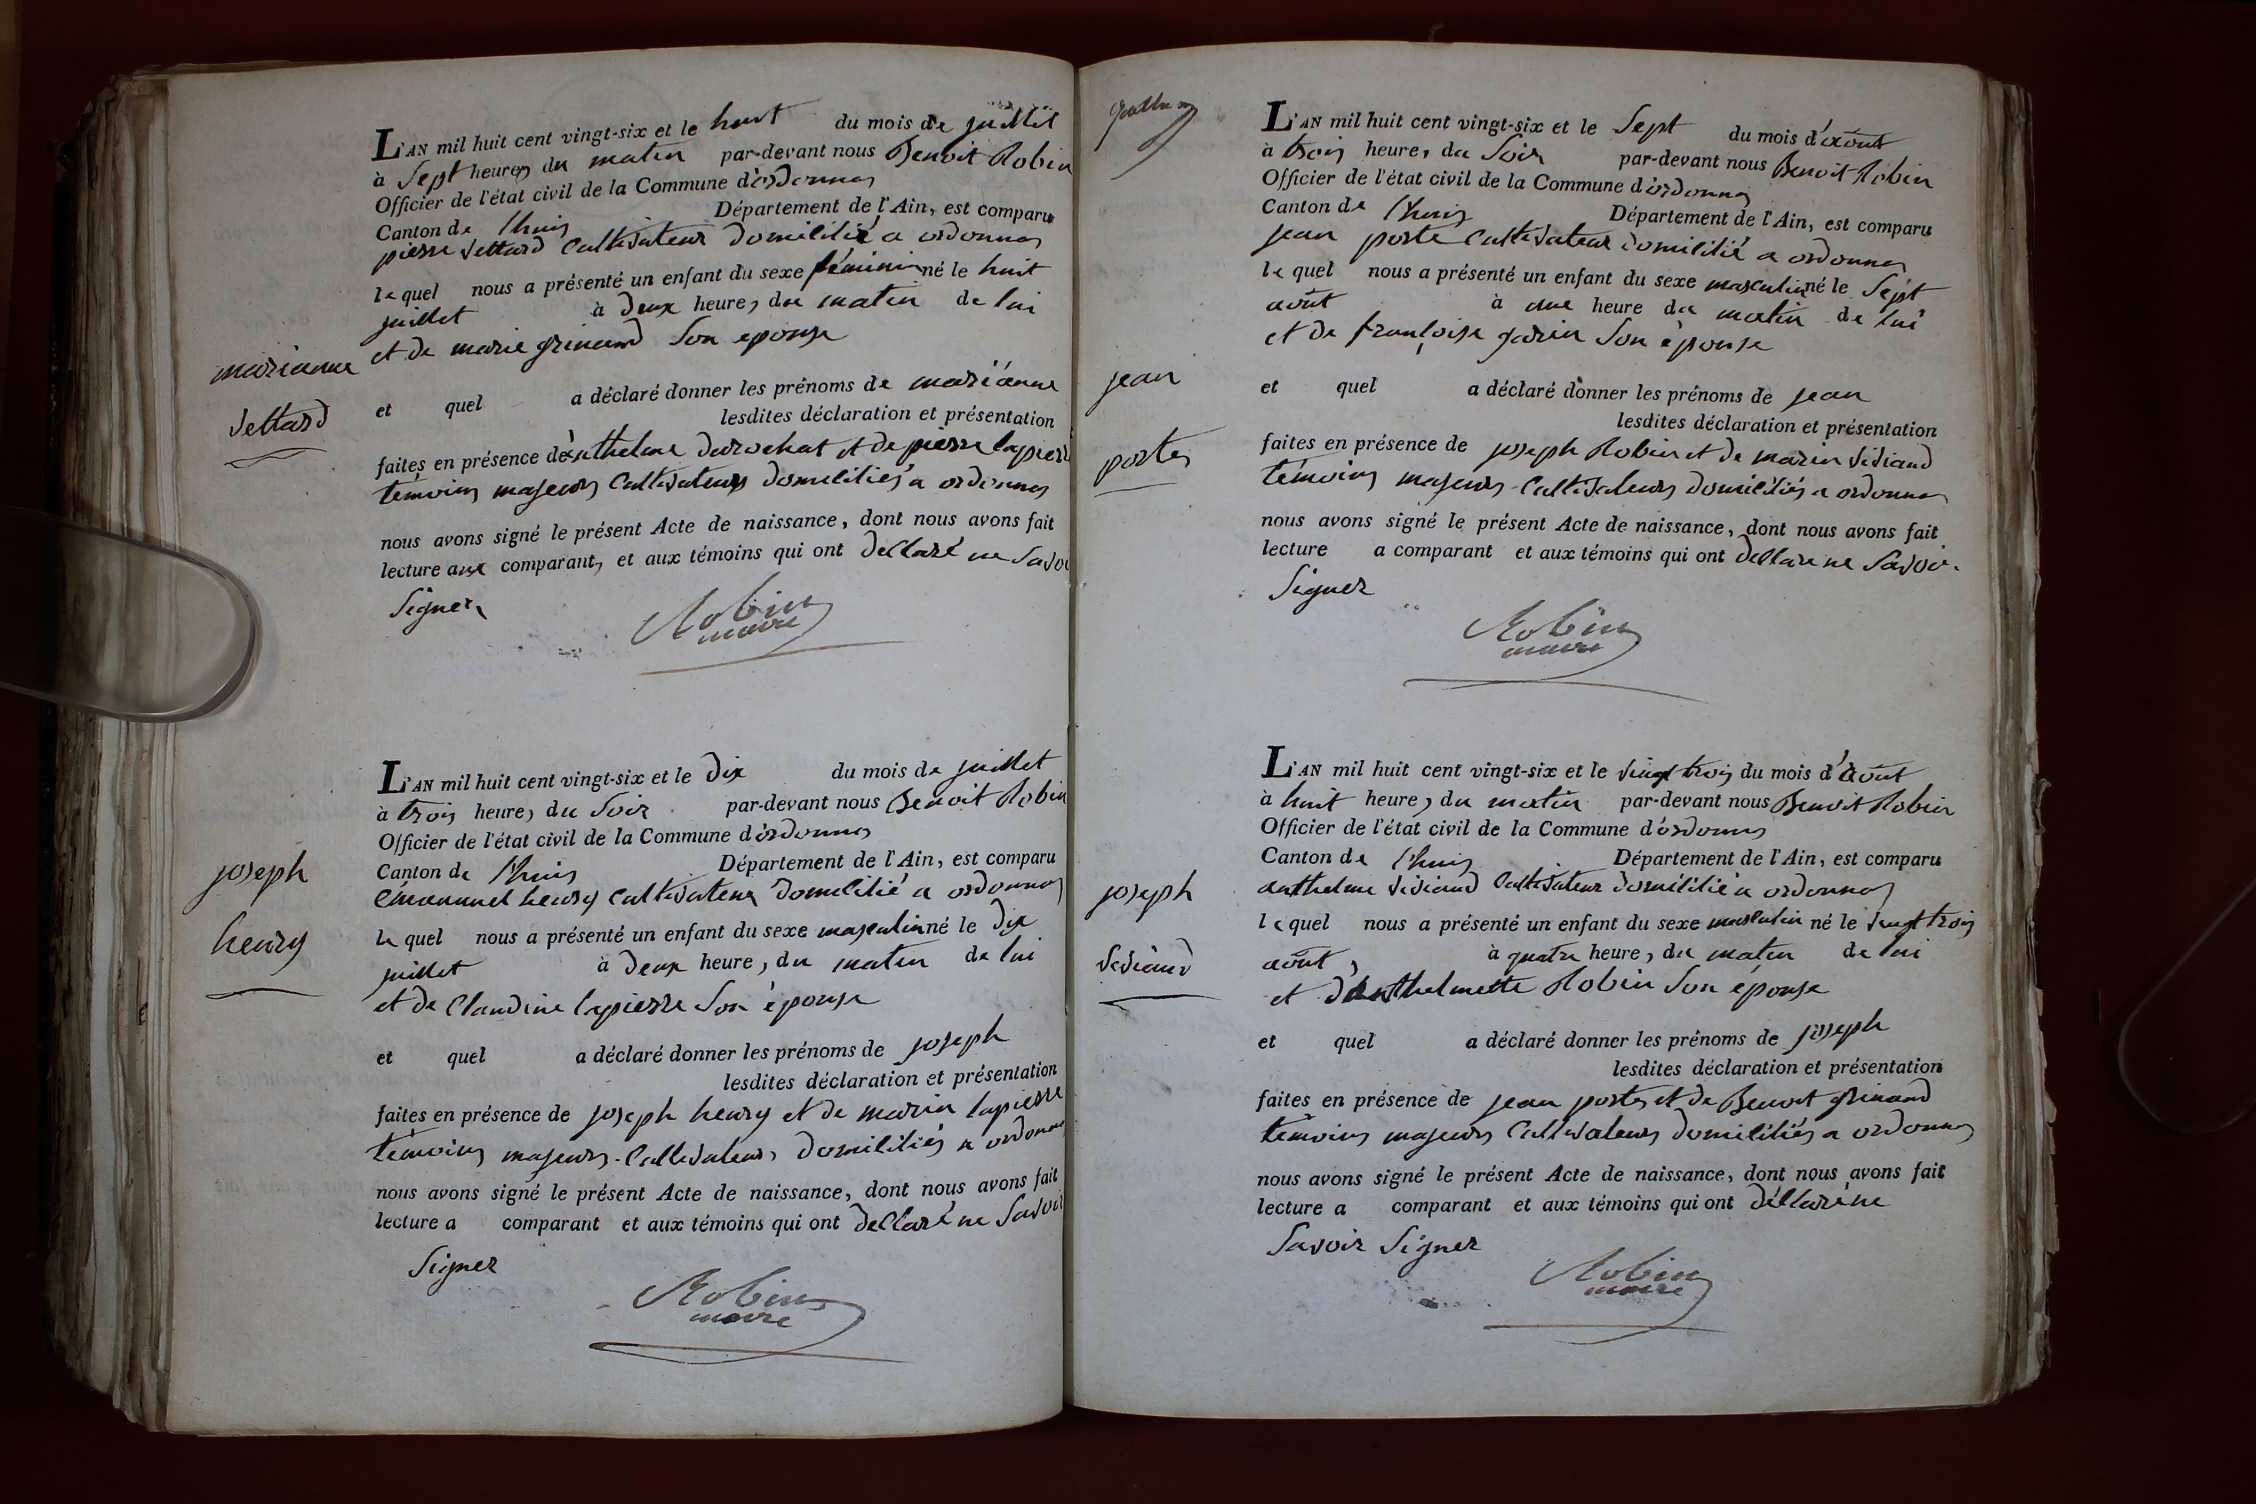 L'AN mil huit cent vingt-six et le huit du mois de juillet
à Sept heures du matin par-devant nous Benoit Robin
Officier de l'état civil de la Commune d'ordonnas
Canton de l'huis Département de l'Ain, est comparu
pierre Vettard Cultivateur domicilié a ordonnas
lequel nous a présenté un enfant du sexe féminin né le huit
juillet à deux heures du matin de lui
et de marie grinand Son epouse
marianne
Vettard
et quel a déclaré donner les prénoms de marianne
lesdites déclaration et présentation
faites en présence d'anthelme durochat et de pierre lapierre
témoins majeurs Cultivateurs domiciliés a ordonnas
nous avons signé le présent Acte de naissance, dont nous avons fait
lecture aux comparants et aux témoins qui ont declaré ne Savoir
Signer
Robin
maire
L'AN mil huit cent vingt-six et le dix du mois de juillet
à trois heures du Soir par-devant nous Benoit Robin
Officier de l'état civil de la Commune d'ordonnas
Canton de l'huis Département de l'Ain, est comparu
émanuel henry Cultivateur domicilié a ordonnas
joseph
henry
lequel nous a présenté un enfant du sexe masculin né le dix
juillet à deux heures du matin de lui
et de Claudine lapierre Son épouse
et quel a déclaré donner les prénoms de joseph
lesdites déclaration et présentation
faites en présence de joseph henry et de marin lapierre
témoins majeurs Cultivateurs domiciliés a ordonnas
nous avons signé le présent Acte de naissance, dont nous avons fait
lecture a comparant et aux témoins qui ont declaré ne Savoir
Signer
Robin
maire
L'AN mil huit cent vingt-six et le Sept du mois d'août
à trois heures du Soir par-devant nous Benoit Robin
Officier de l'état civil de la Commune d'ordonnas
Canton de l'huis Département de l'Ain, est comparu
jean porte Cultivateur domicilié a ordonnas
lequel nous a présenté un enfant du sexe masculin né le Sept
août à une heure du matin de lui
et de françoise garin Son épouse
jean
portes
et quel a déclaré donner les prénoms de jean
lesdites déclaration et présentation
faites en présence de joseph Robin et de marin Viviand
témoins majeurs Cultivateurs domiciliés a ordonnas
nous avons signé le présent Acte de naissance, dont nous avons fait
lecture a comparant et aux témoins qui ont declare ne Savoir
Signer
Robin
maire
L'AN mil huit cent vingt-six et le vingt trois du mois d'août
à huit heures du matin par-devant nous Benoit Robin
Officier de l'état civil de la Commune d'ordonnas
Canton de l'huis Département de l'Ain, est comparu
anthelme Viviand Cultivateur domicilié a ordonnas
joseph
Viviand
lequel nous a présenté un enfant du sexe masculin né le vingt trois
août à quatre heures du matin de lui
et d'anthelmette Robin Son épouse
et quel a déclaré donner les prénoms de joseph
lesdites déclaration et présentation
faites en présence de jean portes et de Benoit grinand
témoins majeurs Cultivateurs domiciliés a ordonnas
nous avons signé le présent Acte de naissance, dont nous avons fait
lecture a comparant et aux témoins qui ont déclaré ne
Savoir Signer
Robin
maire